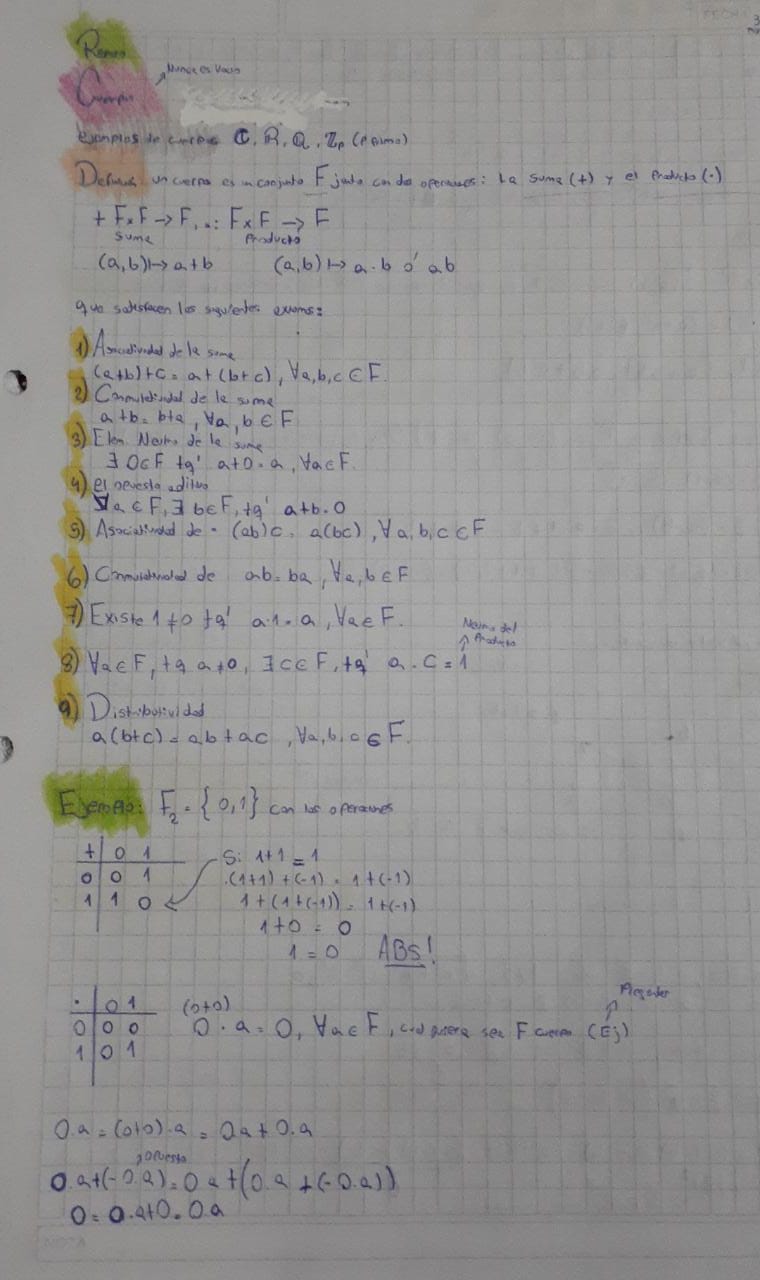 Repaso
Nunca es Vacio
Cuerpo
ejemplos de cuerpos C, R, Q, Zp (primo)
Definición un cuerpo es un conjunto F junto con dos operaciones: La suma (+) y el Producto (·)
+ FxF → F, ·: FxF → F
suma Producto
(a,b) ↦ a+b (a,b) ↦ a·b ó ab
que satisfacen los siguientes axioms:
1) Asociatividad de la suma
(a+b)+c = a+(b+c), ∀a,b,c ∈ F
2) Conmutatividad de la suma
a+b = b+a, ∀a, b ∈ F
3) Elem. Neutro de la suma
∃ 0∈F tq' a+0=a, ∀a∈F.
4) el opuesto aditivo
∀a ∈ F, ∃ b∈F, tq' a+b=0
5) Asociatividad de · (ab)c = a(bc), ∀a,b,c ∈ F
6) Conmutatividad de ab=ba, ∀a,b∈F
7) Existe 1≠0 tq' a·1=a, ∀a∈F.
Neutro del
Producto
8) ∀a∈F, tq a≠0, ∃c∈F, tq' a.c=1
9) Distributividad
a(b+c) = ab+ac, ∀a,b,c ∈ F.
Ejemplo: F2 = {0,1} con las operaciones
+ 0 1
0 0 1
1 1 0
Si 1+1=1
(1+1)+(-1) = 1+(-1)
1+(1+(-1)) = 1+(-1)
1+0 = 0
1=0 ABS!
· 0 1
0 0 0
1 0 1
(0+0)
0·a=0, ∀a∈F, cualquiera sea F cuerpo (Ej)
0.a = (0+0).a = 0a+0.a
opuesto
0.a+(-0.a) = 0a+(0.a+(-0.a))
0 = 0.a+0 = 0a
NOTA